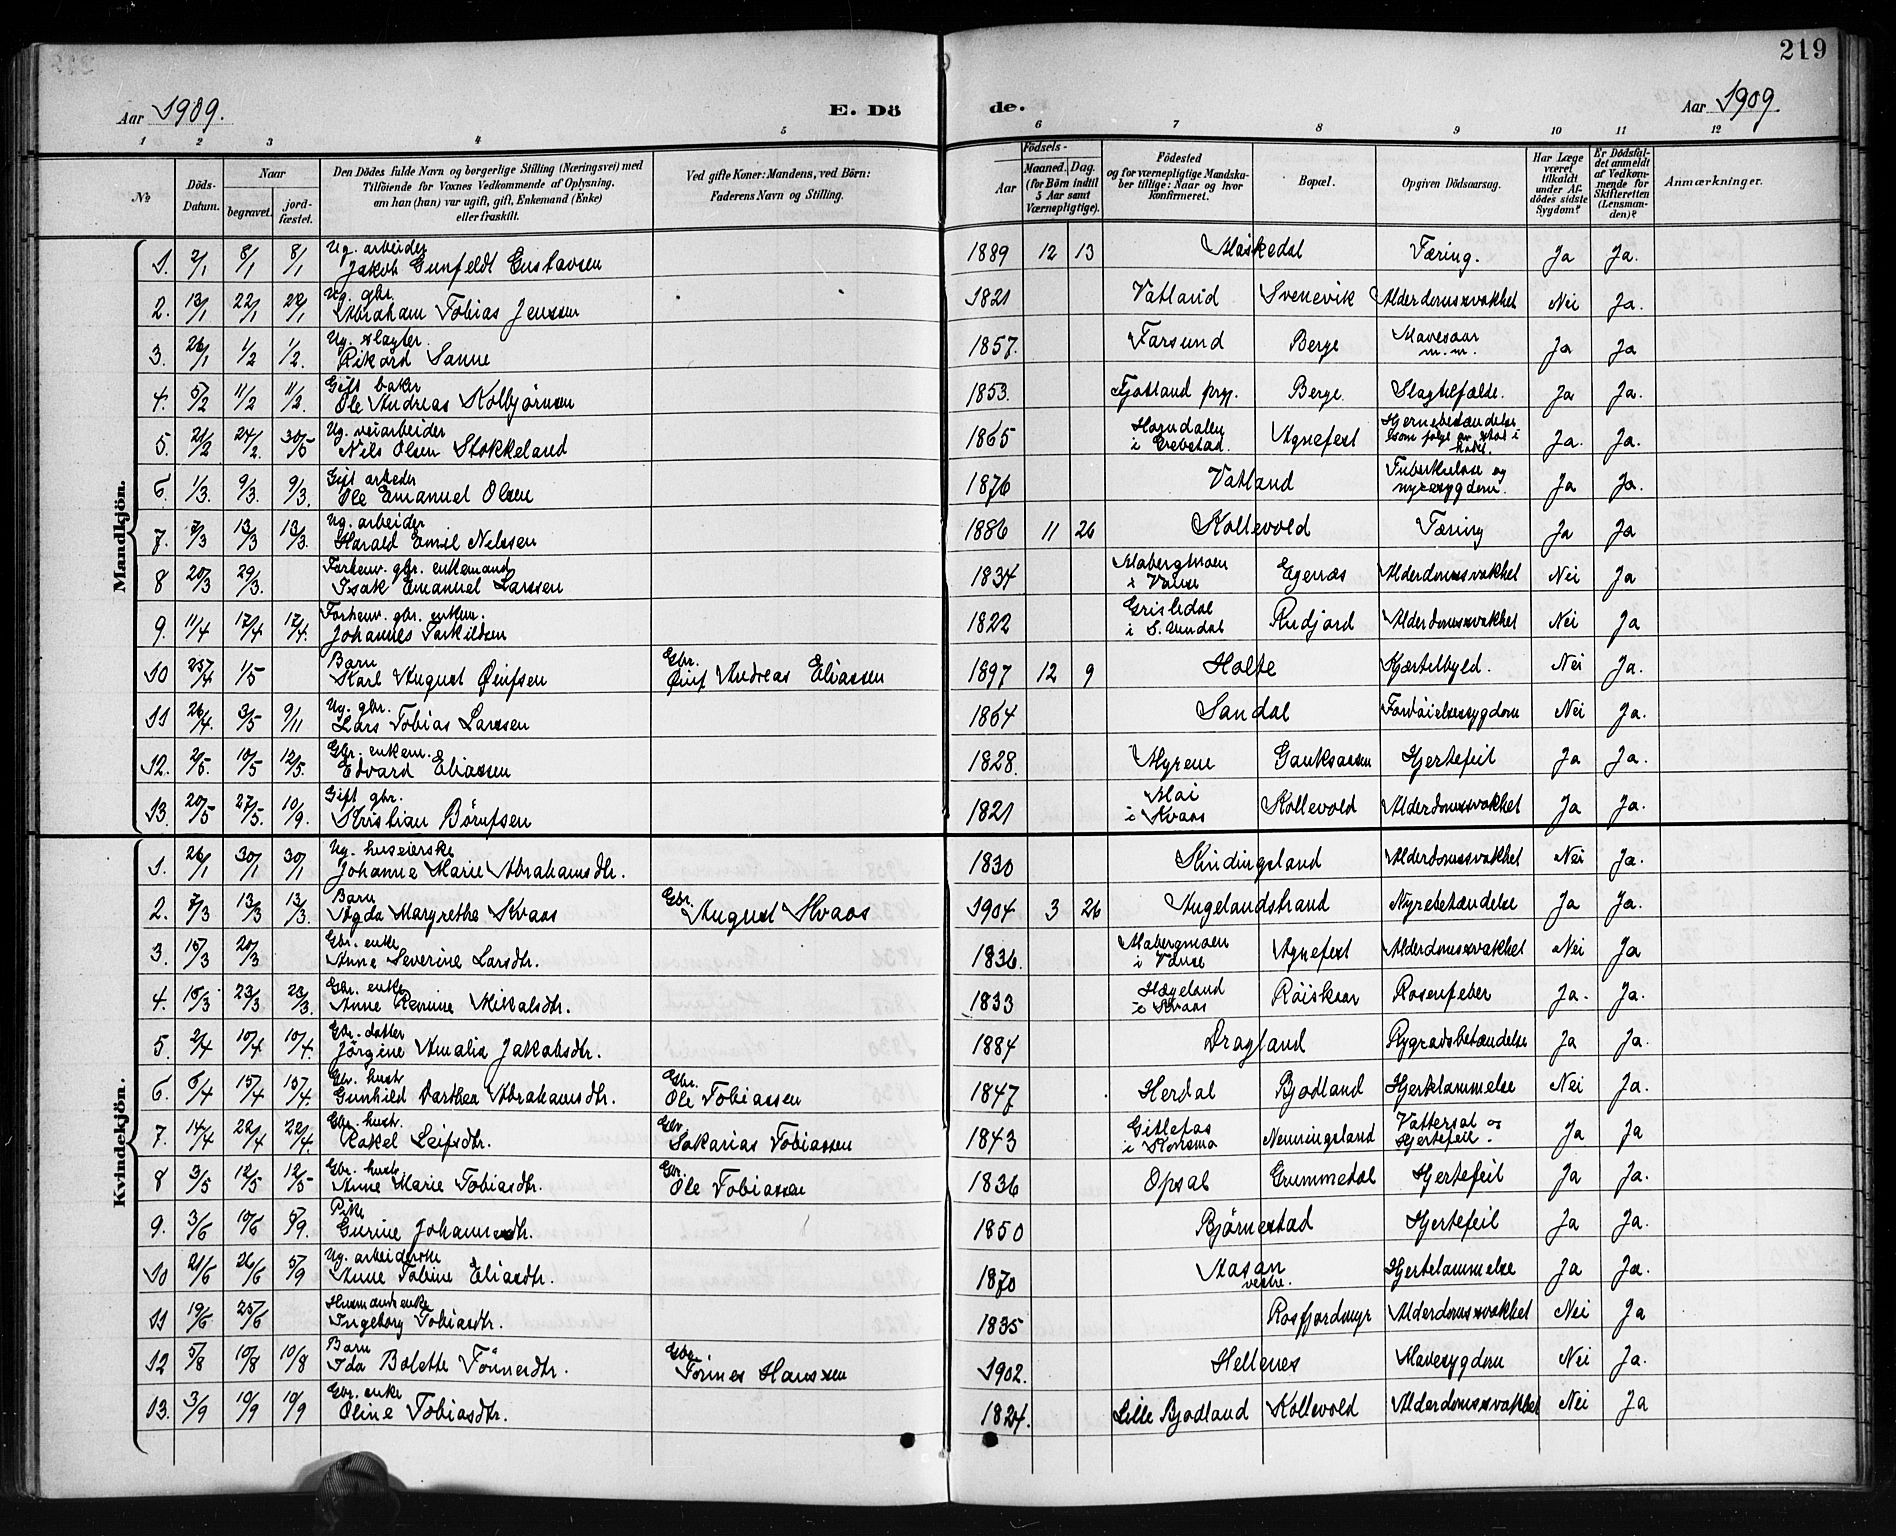 219
Aar 1909. E. Dö de. Aar 1909.
1 2 3 4 5 6 7 8 9 10 11 12
No
Döds-Datum.
Naar
begravet.
jord-fæstet.
Den Dödes fulde Navn og borgerlige Stilling (Næringsvei) med Tilföiende for Voxnes Vedkommende af Oplysning, om han (hun) var ugift, gift, Enkemand (Enke) eller fraskilt.
Ved gifte Koner: Mandens, ved Börn: Faderens Navn og Stilling.
Födsels-
Aar
Maaned. Dag.
(for Börn indtil 5 Aar samt Værnepligtige).
Födested og for værnepligtige Mandska-ber tillige: Naar og hvor konfirmeret.
Bopæl.
Opgiven Dödsaarsag.
Har Læge været tilkaldt under Af-dödes sidste Sygdom?
Er Dödsfal-det anmeldt af Vedkom-mende for Skifteretten (Lensman-den)?
Anmærkninger.
Mandkjön.
1. 2/1 8/1 8/1 Ug. arbeider Jakob Gunfeldt Gustavsen 1889 12 13 Møskedal Tæring. Ja Ja.
2. 13/1 22/1 22/1 Ug. gbr. Abraham Tobias Jenssen 1821 Vatland Svenevik Alderdomssvakhet Nei Ja.
3. 26/1 1/2 1/2. Ug. slagter. Rikard Sanne 1857. Farsund Berge Mavesaar m.m. Ja Ja
4. 5/2 11/2 11/2. Gift baker Ole Andreas Kolbjørnsen 1853. Fjotland prgj. Berge Slagtilfælde. Ja Ja.
5. 21/2 24/2. 30/5 Ug. veiarbeider Nils Olsen Stokkeland 1865 i Agnefest Hjernebetændelse Ja. Ja.
6. 1/3. 9/3. 9/3. Gift arbeder Ole Emanuel Olsen 1876 Vatland Tuberkulose og nyresygdom. Ja Ja.
7. 7/3 13/3 13/3. Ug. arbeider Harald Emil Nelssen 1886 11 26 Kollevold Tæring Ja Ja
8 20/3 29/3. Forhenv. gbr. enkemand Isak Emanuel Larssen 1834 Mabergmoen i Vanse Egenæs Alderdomssvakhet Nei Ja
9. 11/4 17/4 17/4. Forhenv. gbr. enkem. Johannes Tarkildsen 1822 Grisledal i S. Undal Rudjord Alderdomssvakhet Nei Ja
10 25/4 1/5 Barn Karl August Øinfsen Gbr. Øinf Andreas Eliassen 1897 12 9 Holte Kjærtelbyld. Nei Ja.
11 26/4. 3/5 9/11 Ug. gbr. Lars Tobias Larssen 1864 Sandal Fordøielsessygdom Nei Ja.
12. 2/5. 10/5 12/5. Gbr. enkem. Edvard Eliassen 1828. Myrene Gauksaasen Hjertefeil Ja Ja.
13. 20/5 27/5. 10/9. Gift gbr. Kristian Børufsen 1821 Moi i Kvaas Kollevold Alderdomssvakhet Ja Ja.
Kvindekjön.
1. 26/1 30/1 30/1 Ug. huseierske Johanne Marie Abrahamsdtr. 1830 Skindingsland Alderdomssvakhet Nei Ja.
2. 7/3 13/3 13/3. Barn Agda Margrethe Kvaas Gbr. August Kvaas 1904 3 26 Augelandstrand Nyrebetændelse Ja Ja.
3. 15/3 20/3 Gbr. enke Anne Severine Larsdtr. 1836. Mabergmoen i Vanse Agnefest Alderdomssvakhet Nei Ja
4. 15/3 23/3 23/3. Gbr. enke Anne Regine Mikalsdtr. 1833 Hægeland i Kvaas Røiskaar Rosenfeber Ja. Ja.
5. 2/4 10/4. 10/4. Gbr. datter Jørgine Amalia Jakobsdtr. 1884 Dragland Rygradsbetændelse Ja Ja.
6. 6/4 15/4 15/4. Gbr. hustr Gunhild Darthea Abrahamsdtr. Gbr. Ole Tobiassen 1847 Herdal Bjodland Hjertelammelse Nei Ja.
7. 14/4 22/4 22/4. Gbr. hustr. Rakel Leifsdtr. Gbr Sakarias Tobiassen 1843 i Nenningsland Vattersot og Hjertefeil. Ja Ja
8 3/5 12/5 12/5 Gbr. hustr Anne Marie Tobiasdtr. Gbr. Ole Tobiassen 1836 Opsal Grummedal Hjertefeil Ja Ja.
9. 3/6 10/6 5/9. Pike Gurine Johannesdtr. 1850 Bjørnestad Hjertefeil Ja Ja.
10 21/6 26/6 5/9 Ug. arbeiderske Anne Tobine Eliasdtr. 1870 Aasan vestre. Hjertelammelse Ja Ja.
11 19/6 25/6 Husmandsenke Ingeborg Tobiasdtr. 1835 Rosfjordmyr Alderdomssvakhet Nei Ja
12 5/8 10/8 10/8 Barn Ida Bolette Tönnesdtr. Gbr. Tönnes Hanssen 1902. Hellenes Mavesygdom Nei Ja.
13. 3/9 10/9 10/9 Gbr. enke Oline Tobiasdtr. 1824. Lille Bjodland Kollevold Alderdomssvakhet Nei Ja